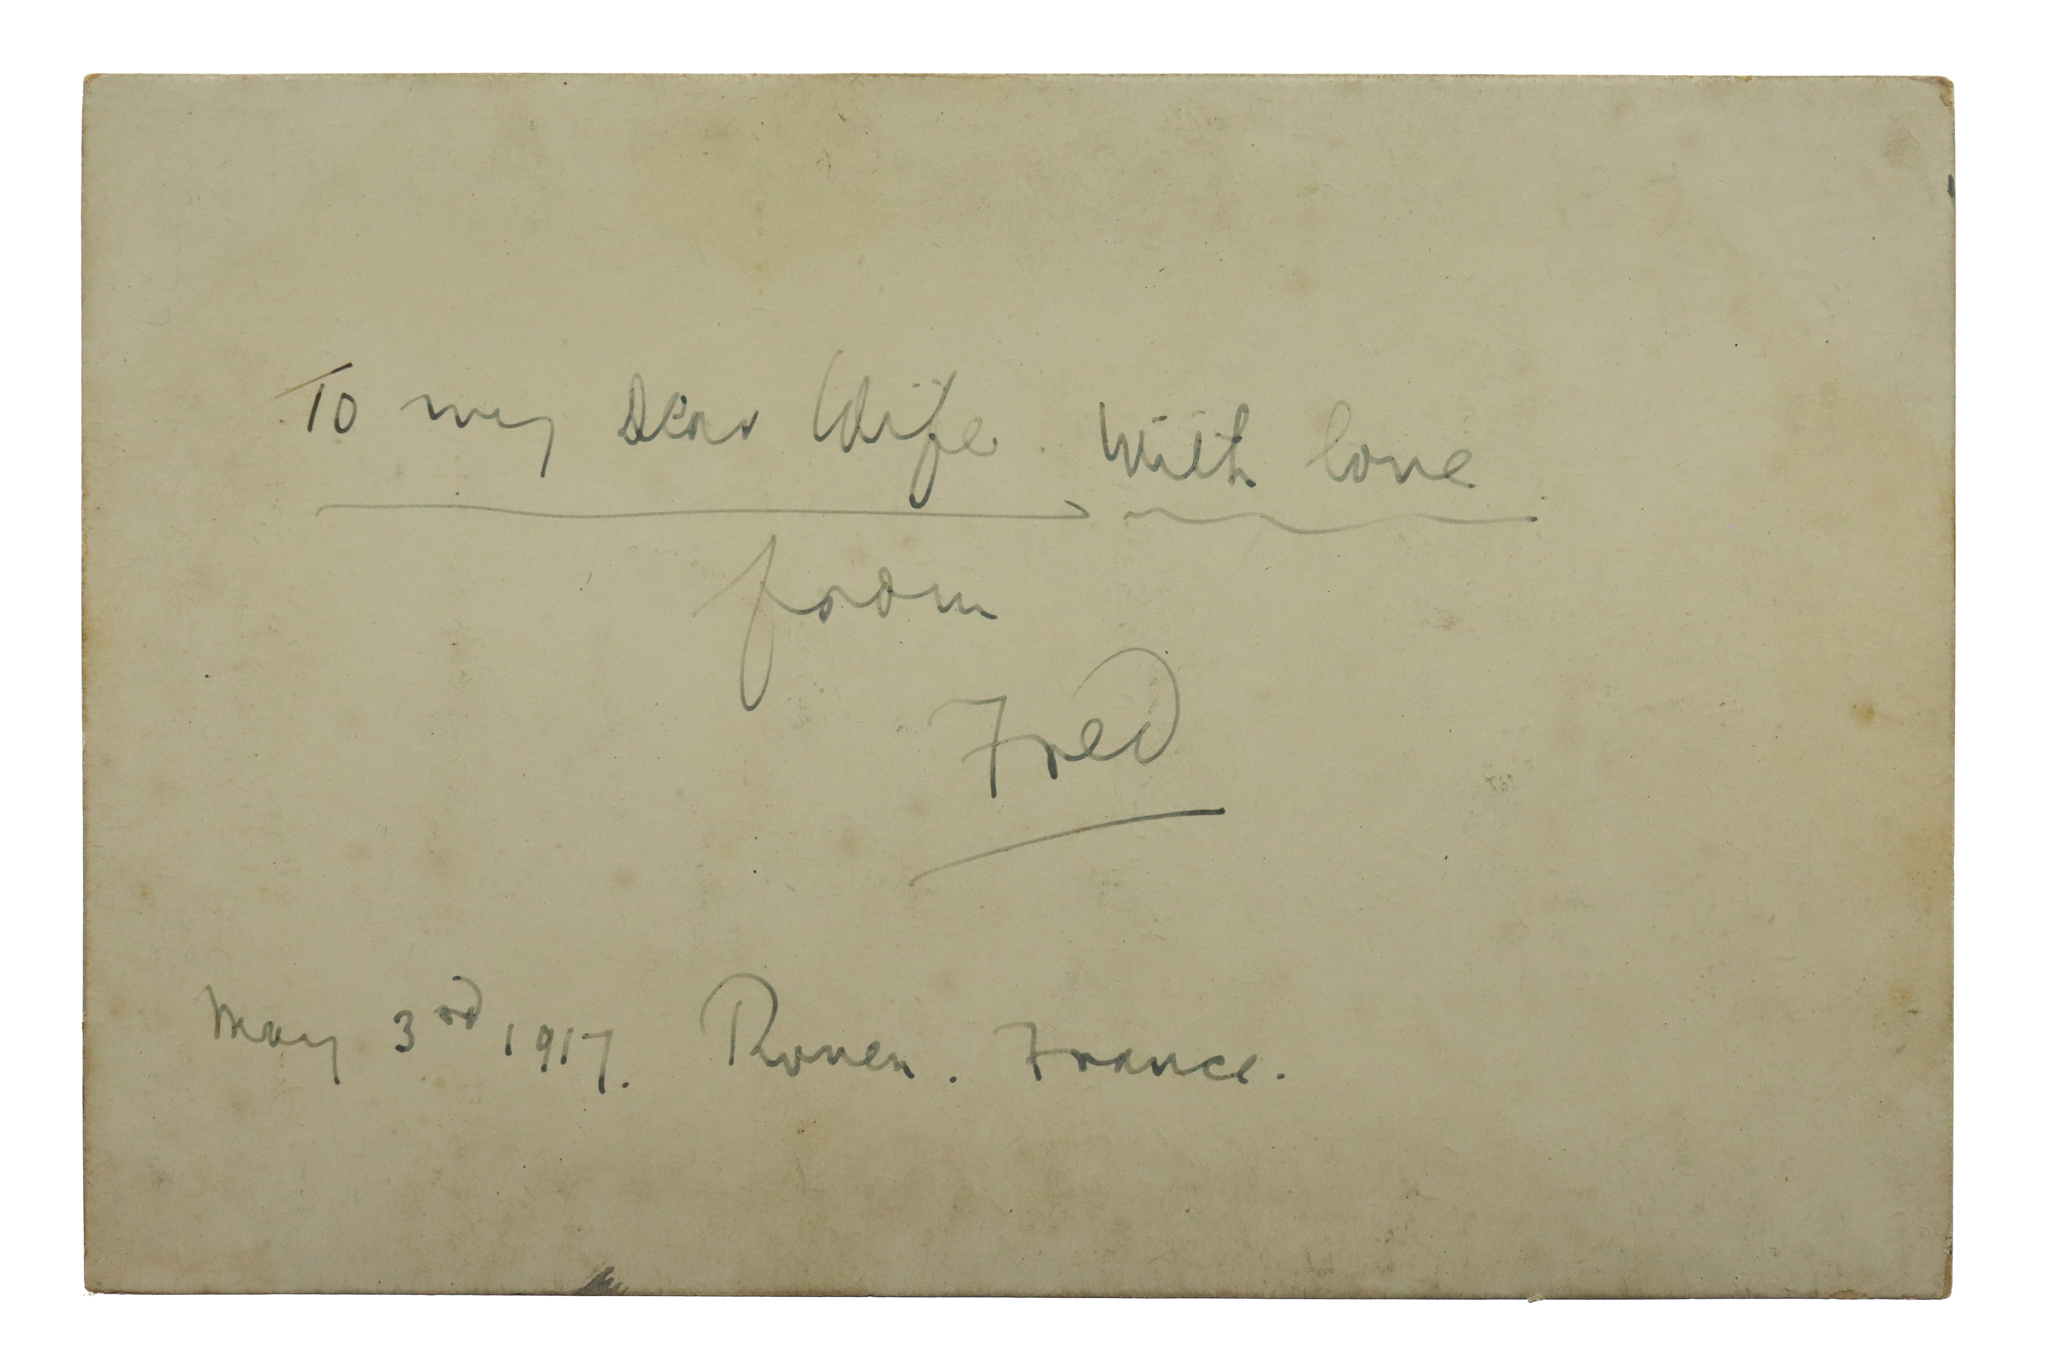 To my Dear Wife. With love.
from
Fred
May 3rd 1917. Rouen. France.